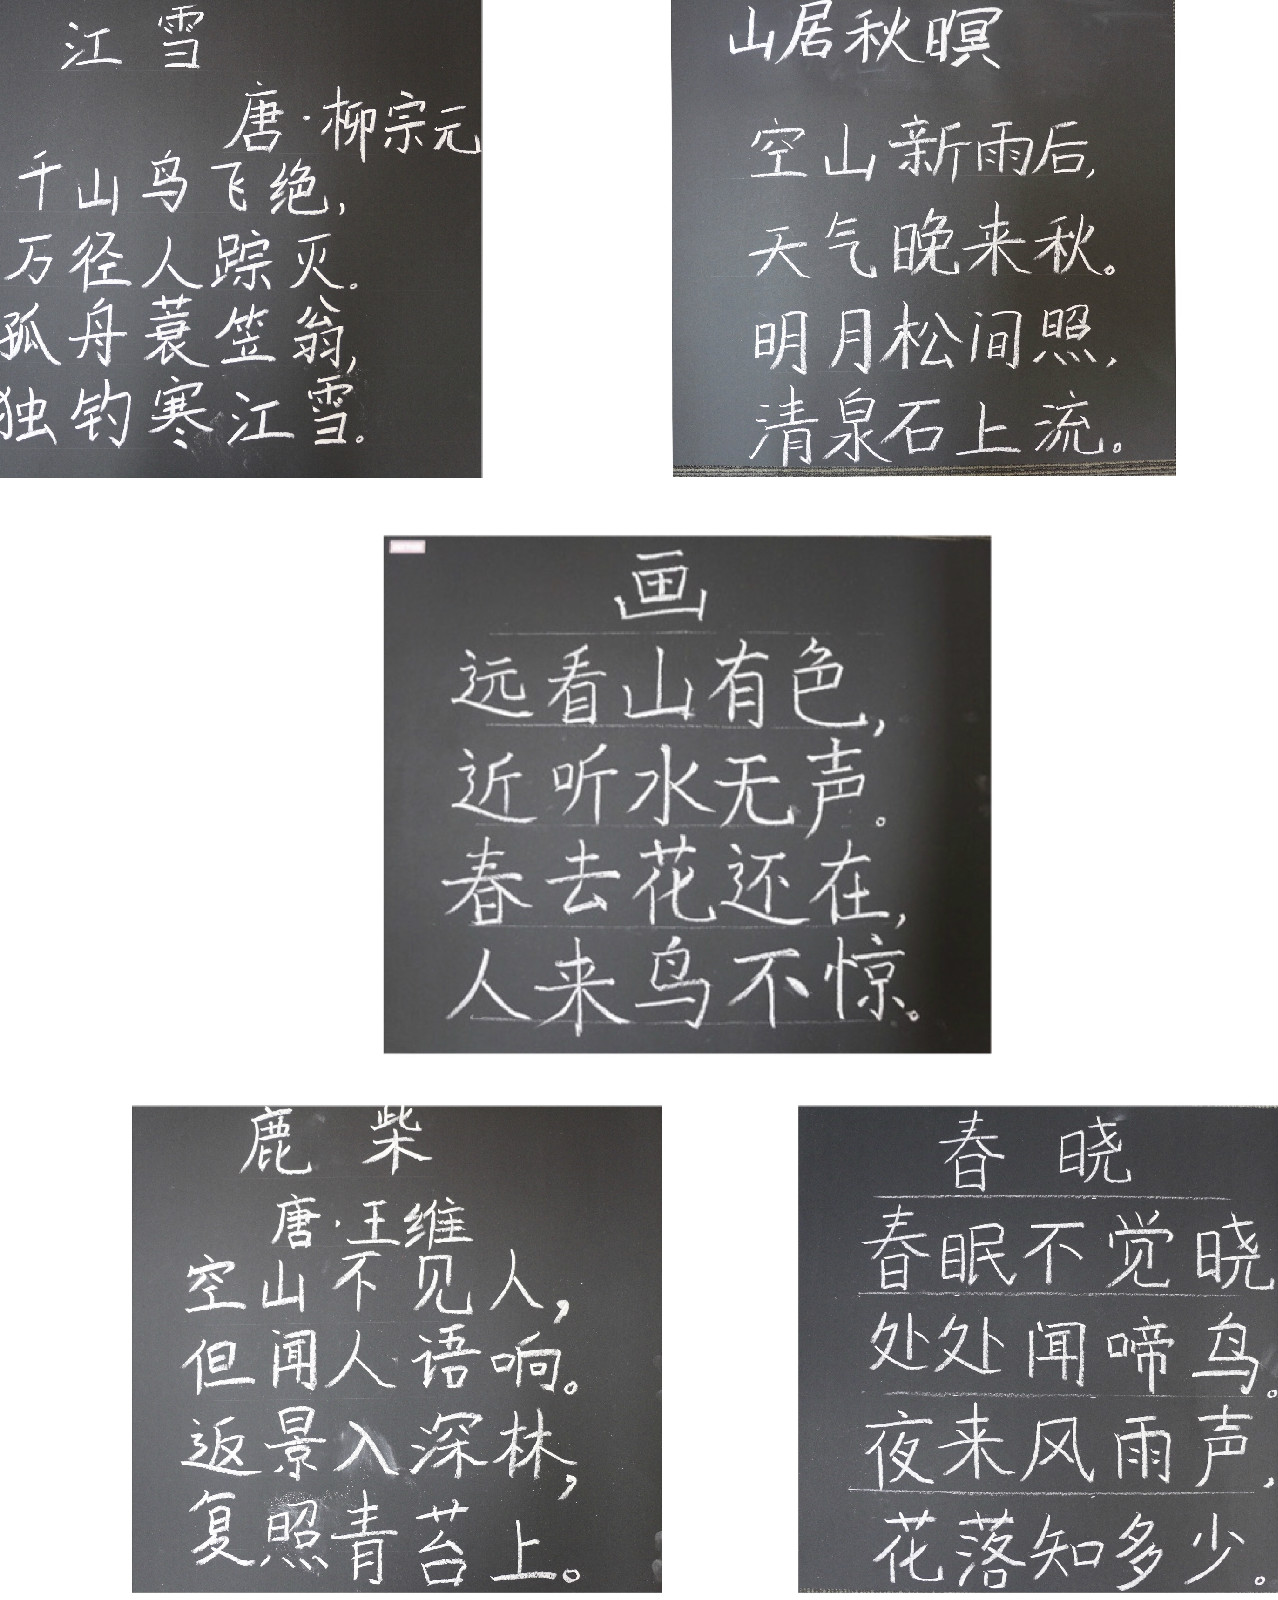 江雪
唐·柳宗元
千山鸟飞绝,
万径人踪灭。
孤舟蓑笠翁,
独钓寒江雪。
山居秋暝
空山新雨后,
天气晚来秋。
明月松间照,
清泉石上流。
画
远看山有色,
近听水无声。
春去花还在,
人来鸟不惊。
鹿柴
唐·王维
空山不见人,
但闻人语响。
返景入深林,
复照青苔上。
春晓
春眠不觉晓
处处闻啼鸟。
夜来风雨声,
花落知多少。